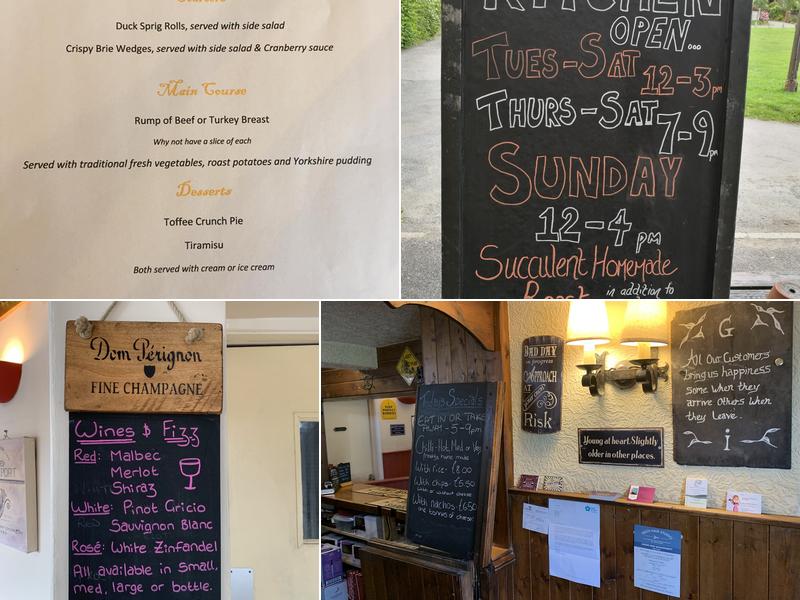 Starters
Duck Sprig Rolls, served with side salad
Crispy Brie Wedges, served with side salad & Cranberry sauce
Main Course
Rump of Beef or Turkey Breast
Why not have a slice of each
Served with traditional fresh vegetables, roast potatoes and Yorkshire pudding
Desserts
Toffee Crunch Pie
Tiramisu
Both served with cream or ice cream
KITCHEN
OPEN...
TUES-SAT
12-3pm
THURS-SAT
7-9pm
SUNDAY
12-4pm
Succulent Homemade
Roast
in addition to
Dom Pérignon
FINE CHAMPAGNE
Wines & Fizz
Red: Malbec
Merlot
Shiraz
White: Pinot Gricio
Sauvignon Blanc
Rosé: White Zinfandel
All available in small,
med, large or bottle.
Specials
EAT IN OR TAKE
AWAY - 5-9pm
Chilli-Hot, Med or Veg
With rice £8.00
With chips £6.50
with or without cheese
With nachos £6.50
and tonnes of cheese
BAD DAY
in progress
APPROACH
AT
Risk
Young at heart. Slightly
older in other places.
G
All Our Customers
bring us happiness
some when they
arrive others when
they leave.
i